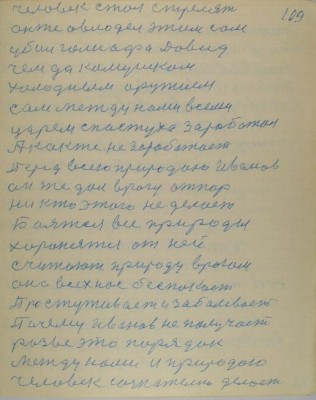 109
человек стал стрелят
он же овлодел этим сам
убил голиафа Довид
чем да камушком
холодным оружием
сам между нами всеми
царем спастуха заработал
А какже не заработает
Перед всего природаю Иванов
он же дал врагу отпор
никто этого не делает
Боятся все природы
хоранятся от ней
считают природу врагом
она всех нас беспокоит
Простуживает и заболевает
Почему Иванов не получает
розве это порядок
между нами и природаю
человек сознателно делает